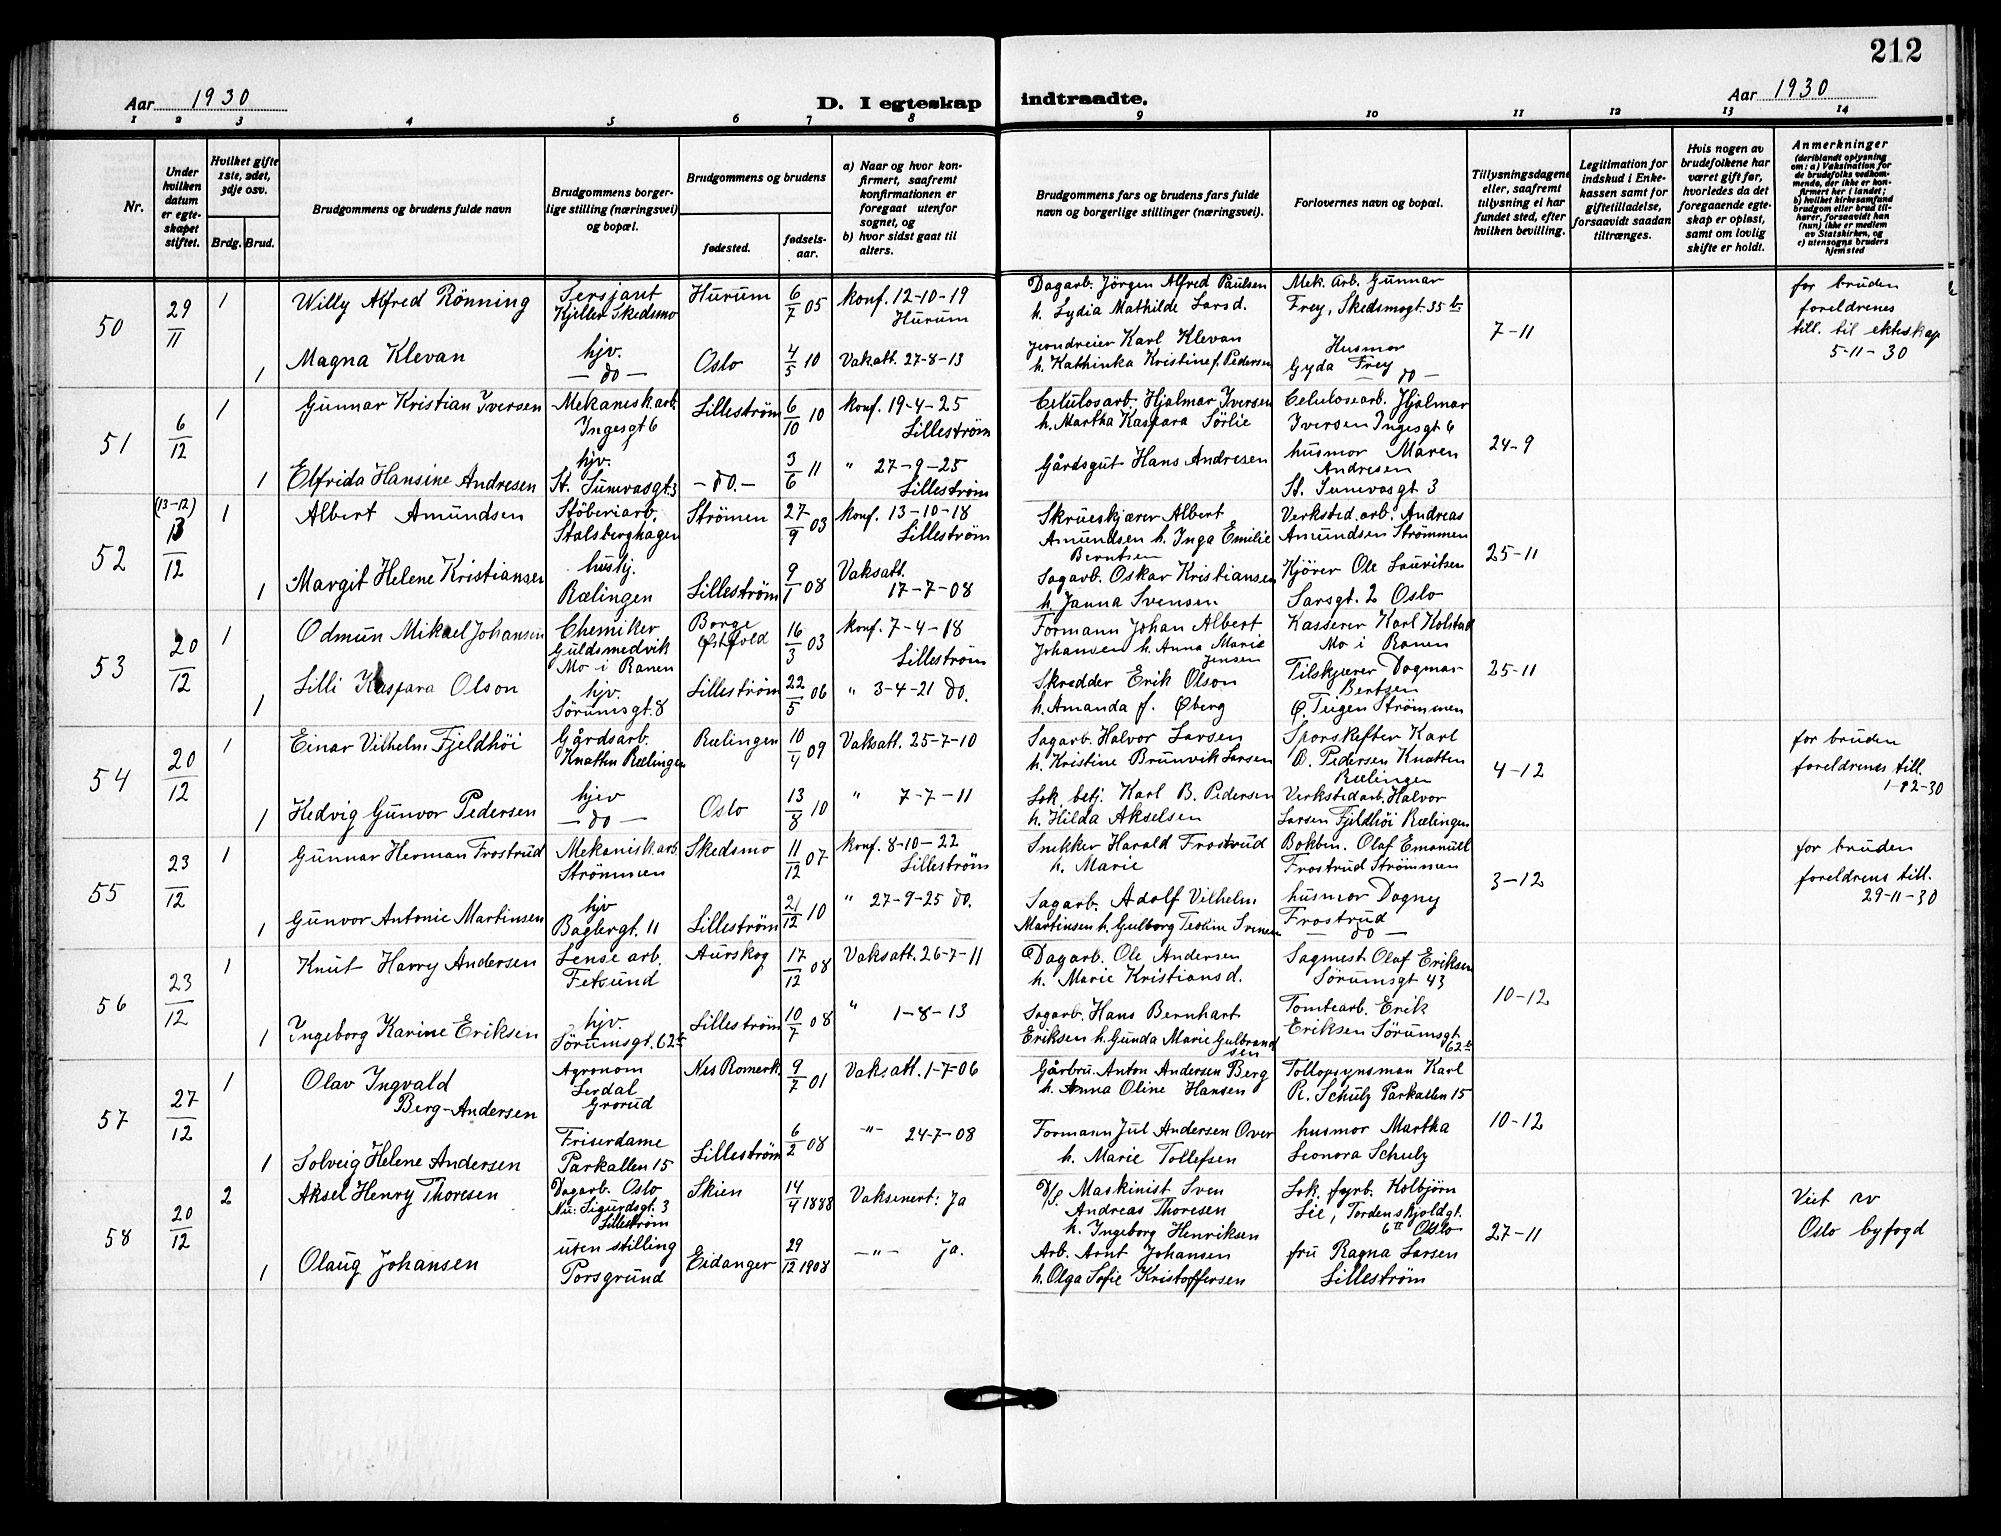 212
Aar 1930
D. I egteskap
indtraadte.
Aar 1930
1 2 3 4 5 6 7 8 9 10 11 12 13 14
Nr.
Under hvilken datum er egteskapet stiftet.
Hvilket gifte 1ste, 2det, 3dje osv.
Brdg. Brud.
Brudgommens og brudens fulde navn
Brudgommens borgerlige stilling (næringsvei) og bopæl.
Brudgommens og brudens
fødested.
fødselsaar.
a) Naar og hvor konfirmert, saafremt konfirmationen er foregaat utenfor sognet, og
b) hvor sidst gaat til alters.
Brudgommens fars og brudens fars fulde navn og borgerlige stillinger (næringsvei).
Forlovernes navn og bopæl.
Tillysningsdagene eller, saafremt tillysning ei har fundet sted, efter hvilken bevilling.
Legitimation for indskud i Enkekassen samt for giftetilladelse, forsaavidt saadan tiltrænges.
Hvis nogen av brudefolkene har været gift før, hvorledes da det foregaaende egteskap er opløst, samt om lovlig skifte er holdt.
Anmerkninger
(deriblandt oplysning om: a) Vaksination for de brudefolks vedkommende, der ikke er konfirmert her i landet; b) hvilket kirkesamfund brudgom eller brud tilhører, forsaavidt han (hun) ikke er medlem av Statskirken, og c) utensogns bruders hjemsted
50
29/11
1
Willy Alfred Rönning
Sersjant
Kjeller Skedsmo
Hurum
6/7 05
konf. 12-10-19
Hurum
Dagarb. Jörgen Alfred Paulsen
h. Lydia Mathilde Larsd.
Mek. Arb. Gunnar
Frey, Skedsmogt. 35 b
7-11
for bruden
foreldrenes
till. til ekteskap
5-11-30
1
Magna Klevan
hjv.
— do —
Oslo
4/5 10
Vakatt. 27-8-13
Karl Klevan
h. Kathinka Kristine f. Pedersen
Husmor
Gyda Frey
do —
51
6/12
1
Gunnar Kristian Iversen
Mekanisk arb.
Ingesgt 6
Lilleström
6/10 10
konf. 19-4-25
Lilleström
Celulosarb. Hjalmar Iversen
h. Martha Kaspara Sörlie
Celulosearb. Hjalmar
Iversen Ingesgt 6
24-9
1
Elfrida Hansine Andresen
hjv.
St. Sunivasgt. 3
— do. —
3/6 11
" 27-9-25
Lilleström
Gårdsgut Hans Andresen
husmor Maren
Andresen
St. Sunivasgt 3
52
(13-12)
13/12
1
Albert Amundsen
Stöberiarb.
Stalsberghagen
Strömen
27/9 03
konf. 13-10-18
Lilleström
Skrueskjærer Albert
Amundsen h. Inga Emilie
Berntsen
Verksted. arb. Andreas
Amundsen Strömmen
25-11
1
Margit Helene Kristiansen
hushj.
Rælingen
Lilleström
9/1 08
Vaksatt.
17-7-08
Sagarb. Oskar Kristiansen
h. Janna Svensen
Kjörer Ole Lauritsen
Sarsgt. 2 Oslo
53
20/12
1
Odmun Mikael Johansen
Chemiker
Guldsmedvik
Mo i Ranen
Borge
Østfold
16/3 03
konf. 7-4-18
Lilleström
Formann Johan Albert
Johansen h. Anna Marie
Jensen
Kasserer Karl Kolstad
Mo i Ranen
25-11
1
Lilli Kaspara Olson
hjv.
Sörumsgt. 8
Lilleström
22/5 06
" 3-4-21 do.
Skredder Erik Olson
h. Amanda f. Øberg
Tilskjærer Dagmar
Bertsen
Ø. Teigen Strömmen
54
20/12
1
Einar Vilhelm Fjeldhöi
Gårdsarb.
Knatten Rælingen
Rælingen
10/4 09
Vaksatt. 25-7-10
Sagarb. Halvor Larsen
h. Kristine Brunvik Larsen
Sporskifter Karl
B. Pedersen Knatten
Rælingen
4-12
for bruden
foreldrenes till.
1-12-30
1
Hedvig Gunvor Pedersen
hjev
— do —
Oslo
13/8 10
" 7-7-11
Lok. betj. Karl B. Pedersen
h. Hilda Akselsen
Verkstedarb. Halvor
Larsen Fjeldhöi Rælingen
55
23/12
1
Gunnar Herman Frostrud
Mekanisk arb
Strömmen
Skedsmo
11/12 07
konf. 8-10-22
Lilleström
Snekker Harald Frostrud
h. Marie
Bokbin. Olaf Emanuel
Frostrud Strömmen
3-12
for bruden
foreldrens till.
29-11-30
1
Gunvor Antonie Martinsen
hjv
Baglergt. 11
Lilleström
21/12 10
" 27-9-25 do.
Sagarb. Adolf Vilhelm
Martinsen h. Gulborg
husmor Dagny
Frostrud
— do —
56
23/12
1
Knut Harry Andersen
Lense arb.
Fetsund
Aurskog
17/12 08
Vaksatt. 26-7-11
Dagarb. Ole Andersen
h. Marie Kristiansd.
Sagmest. Olaf Eriksen
Sörumsgt 43
10-12
1
Ingeborg Karine Eriksen
hjv.
Sörumsgt. 62
Lilleström
10/7 08
" 1-8-13
Sagarb. Hans Bernhart
Eriksen h. Gunda Marie Gulbrand
sen
Tomtearb. Erik
Eriksen Sörumsgt.
62
57
27/12
1
Olav Ingvald
Berg-Andersen
Agronom
Grorud
Nes Romerk.
9/7 01
Vak. att. 1-7-06
Gårbru. Anton Andersen Berg
h. Anna Oline Hansen
Tollopsynsman Karl
R. Schulz Parkallen 15
10-12
1
Solveig Helene Andersen
Friserdame
Parkallen 15
Lilleström
6/2 08
—"— 24-7-08
Formann Jul Andersen Over
h. Marie Tollefsen
husmor Martha
Leonora Schulz
58
20/12
2
Aksel Henry Thoresen
Dagarb. Oslo
Nu: Sigurdsgt. 3
Lilleström
Skien
14/4 1888
Vaksinert: Ja
Maskinist Sven
Andreas Thoresen
h. Ingeborg Henriksen
Lok. fyrb. Kolbjörn
Lie, Tordenskjoldgt.
6 Oslo
27-11
Viet av
Oslo byfogd
1
Olaug Johansen
uten stilling
Porsgrund
Eidanger
29/12 1908
—"— Ja.
Arb. Arnt Johansen
h. Olga Sofie Kristoffersen
fru Ragna Larsen
Lilleström